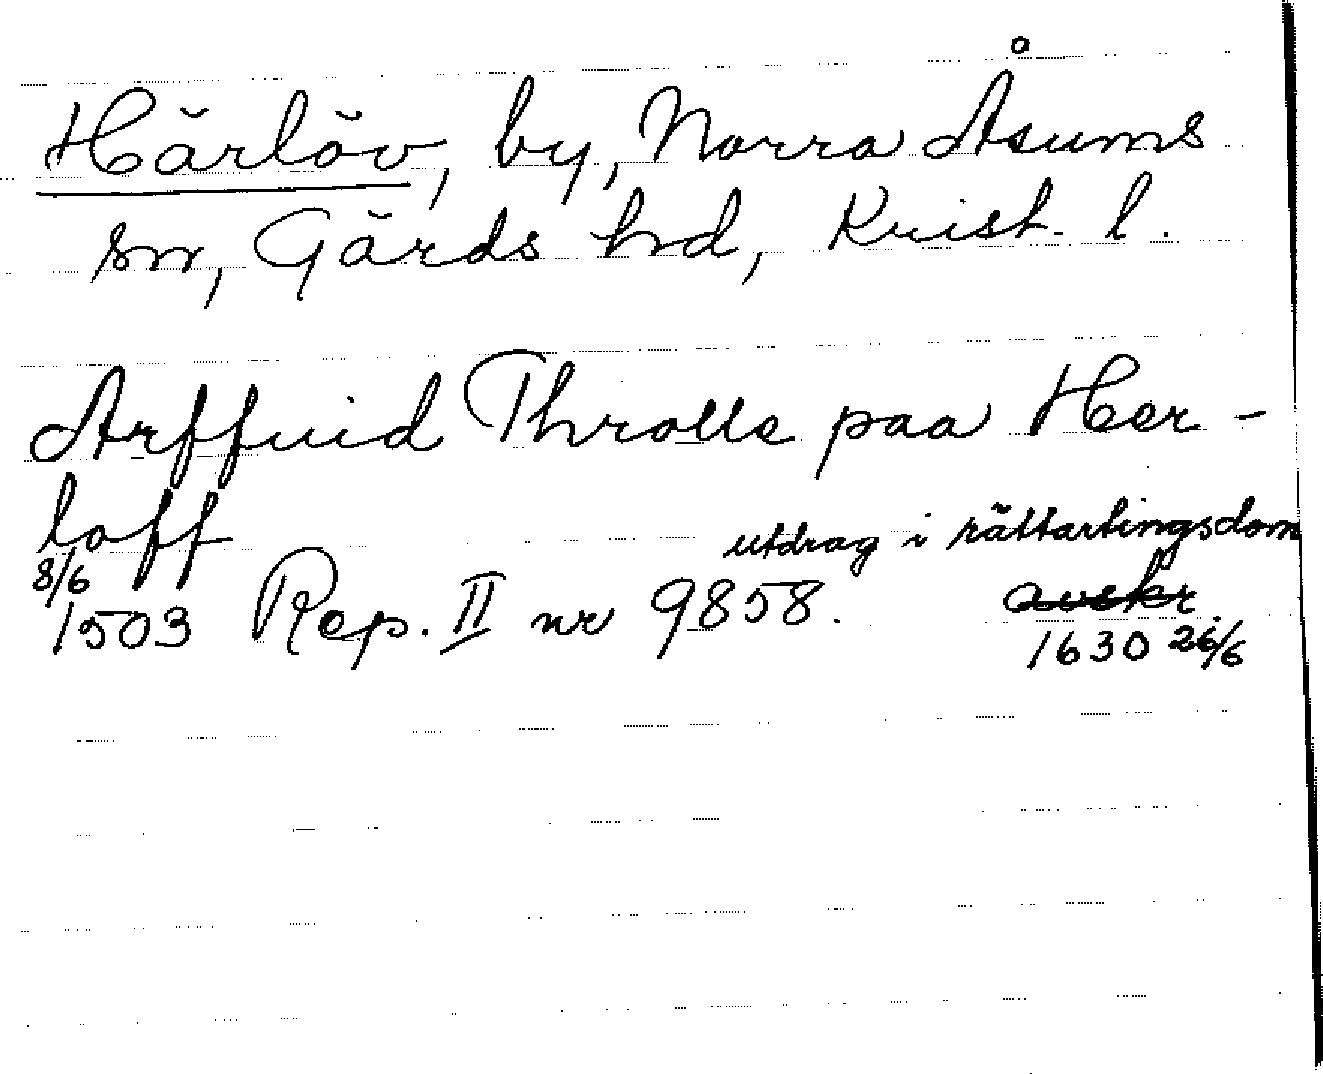 Härlöv, by, Norra Åsums
sn, Gärds hd, Krist. l.
Arffuid Throlle paa Her-
loff
utdrag i rättartingsdom
8/6
1503 Rep. II nr 9858. avskr.
1630 26/6